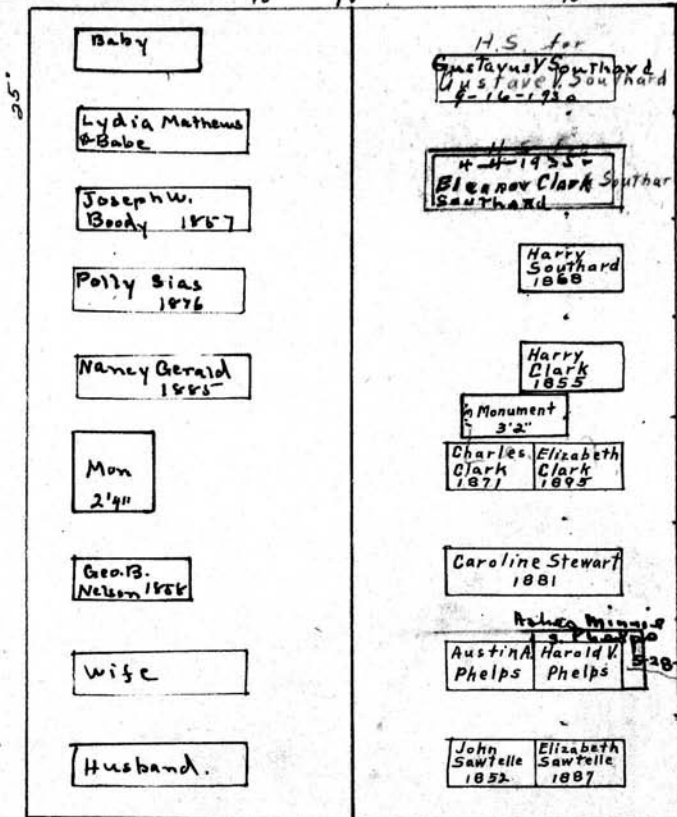 25'
Baby
Lydia Mathews
& Babe
Joseph W.
Boody 1857
Polly Sias
1876
Nancy Gerald
1885
Mon
2'4"
Geo. B.
Nelson 1858
Wife
Husband.
H.S. for
Gustavus V Southard
Gustave V. Southard
9-16-1930
H S For
4-4-1935
Eleanor Clark Southar
Southard
Harry
Southard
1868
Harry
Clark
1855
Monument
3'2"
Charles Elizabeth
Clark Clark
1871 1895
Caroline Stewart
1881
Ashes Minnie
S. Phelps
Austin A. Harold V.
Phelps Phelps
5-28-
John Elizabeth
Sawtelle Sawtelle
1852 1887